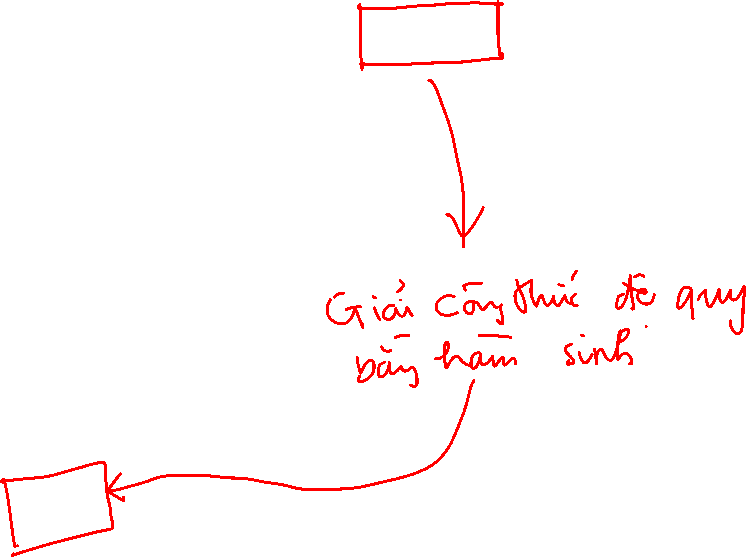 Giải công thức đệ quy
bằng hàm sinh